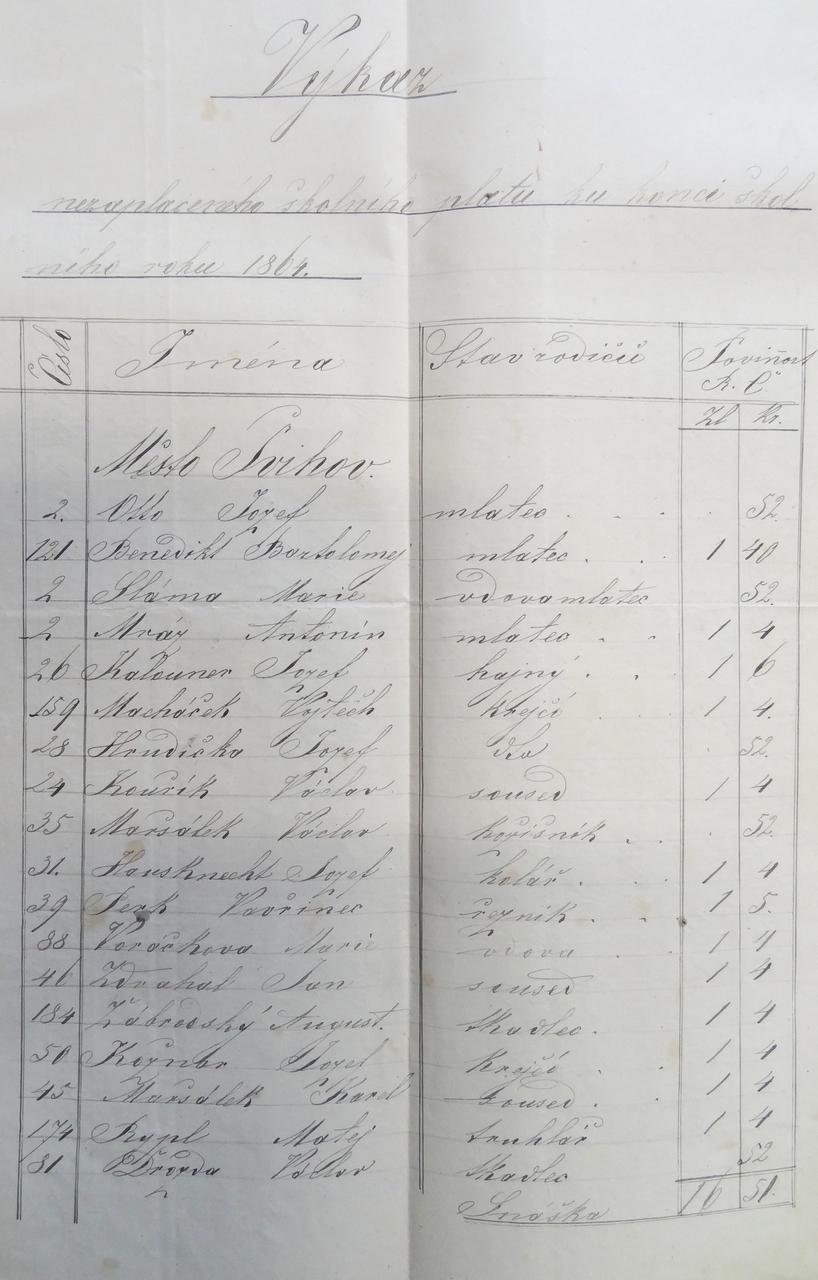 Výkaz
nezaplaceného školního platu ku konci škol
ního roku 1864.
Číslo Jména Stav rodičů Povinnost
R. Č.
Zl Kr.
Město Švihov.
2. Otto Jozef mlatec . . . . 52.
121 Benedikt Bartolomej mlatec . . 1 40
2 Sláma Marie vdova mlatec 52.
2 Mráz Antonín mlatec . . 1 4
26 Kalouner Jozef hajný . . 1 6
159 Macháček Vojtěch krejčí . . 1 4.
28 Hrudička Jozef dto . 52.
24 Kouřík Václav soused 1 4
35 Maršálek Václav kořisník . . . 52.
31. Hausknecht Jozef kolář . . 1 4
39 Perk Vavřinec řezník . . 1 5.
88 Voráčkova Marie vdova . . 1 4
46 Zdrahal Jan soused 1 4
184 Zábrodský August. tkadlec . 1 4
50 Kornar Jozef krejčí . . 1 4
45 Maršálek Karel soused . . 1 4
174 Rypl Matěj truhlář 1 4
81 Drozda Václav tkadlec 52
Snáška 16 51.